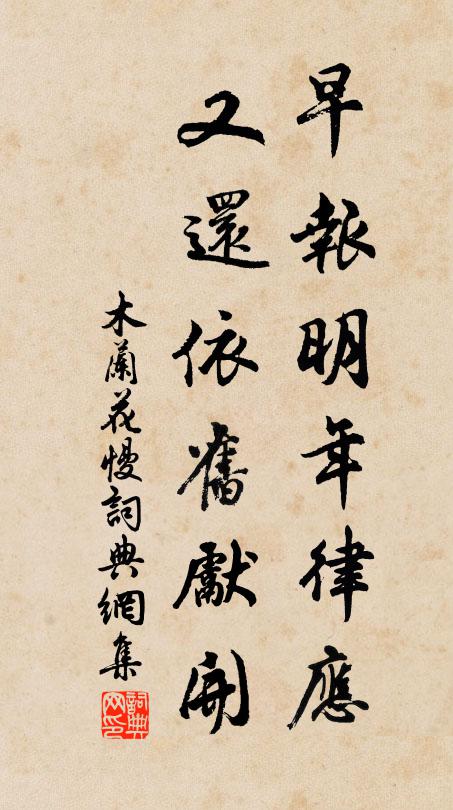 早報明年律應
又還依舊獻開
木蘭花慢詞典網集
詞典网印